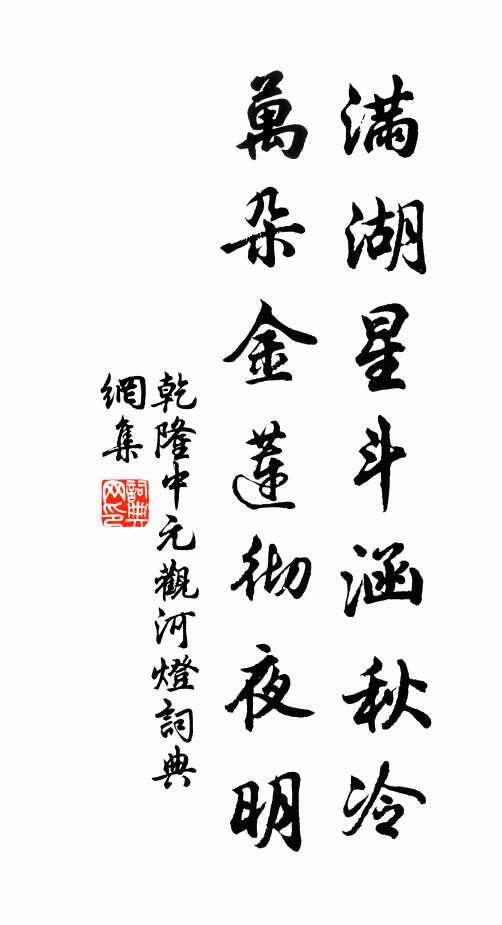 滿湖星斗涵秋冷
萬朵金蓮彻夜明
乾隆中元觀河燈詞典
網集
詞典
网印